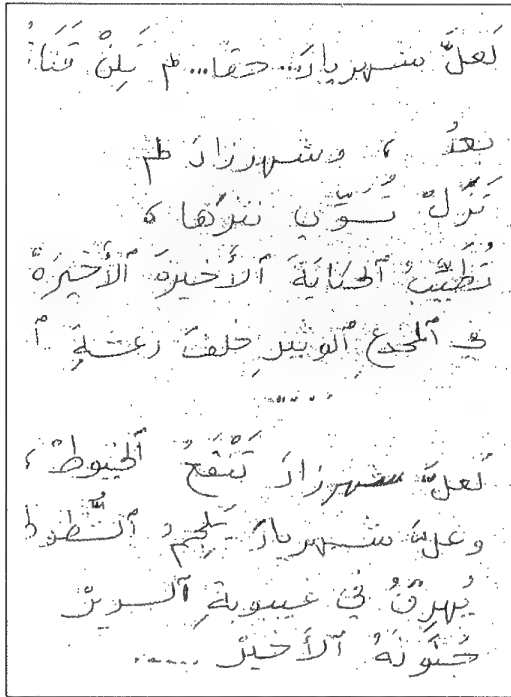 لَعلَّ شهريارَ... حقا... لم يَلِنْ قَنَا:
بعدُ ، وشهرزادَ لم
تَزَلْ تُسَوِّي نثرَها ،
تُطَيِّبُ ٱلحكايَةَ ٱلأَخيرةَ ٱلأَخيرَهْ
في ٱلمخدعِ ٱلوثيرِ خلفَ رعشةِ ٱ
.....
لعلَّ شهرزادَ تَنْقَعُ ٱلخيوطْ ،
وعلَّ شهريارَ يَلْجِمُ ٱلشُّطوط
يُهرِقُ في غيبوبةِ ٱلسريرْ
جُنونَهُ ٱلأَخيرْ .....